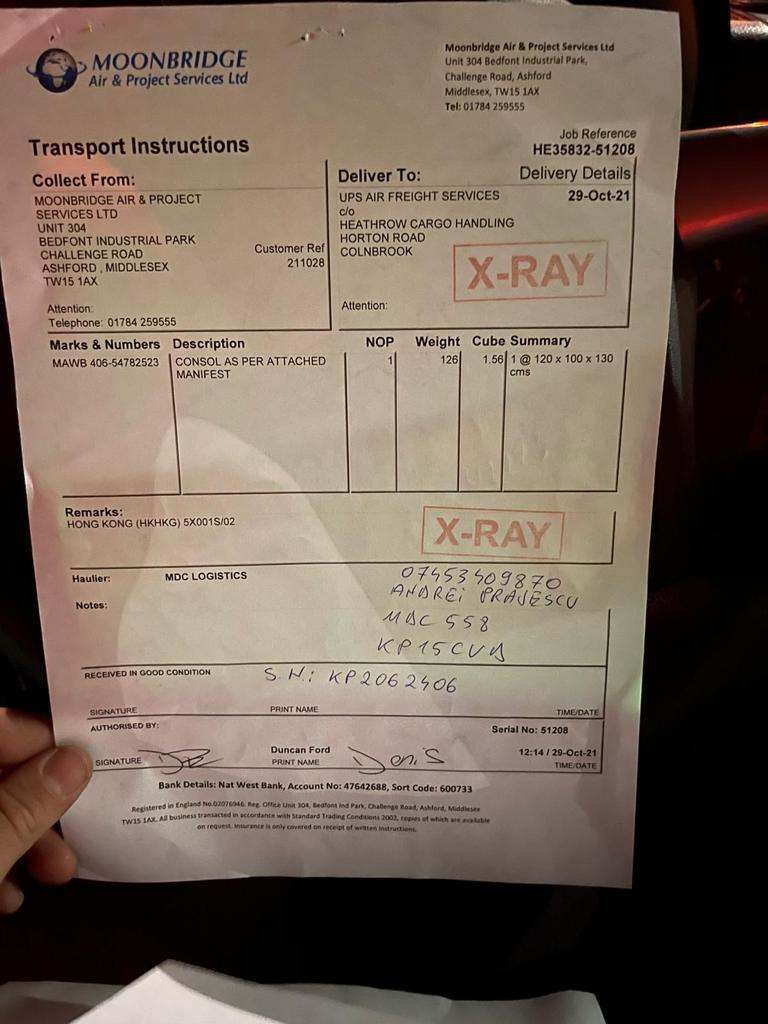 MOONBRIDGE
Air & Project Services Ltd
Moonbridge Air & Project Services Ltd
Unit 304 Bedfont Industrial Park,
Challenge Road, Ashford
Middlesex, TW15 1AX
Tel: 01784 259555
Transport Instructions
Job Reference
HE35832-51208
Collect From:
MOONBRIDGE AIR & PROJECT
SERVICES LTD
UNIT 304
BEDFONT INDUSTRIAL PARK
CHALLENGE ROAD
ASHFORD , MIDDLESEX
TW15 1AX
Customer Ref
211028
Attention:
Telephone: 01784 259555
Deliver To:
Delivery Details
UPS AIR FREIGHT SERVICES
29-Oct-21
c/o
HEATHROW CARGO HANDLING
HORTON ROAD
COLNBROOK
X-RAY
Attention:
Marks & Numbers Description NOP Weight Cube Summary
MAWB 406-54782523 CONSOL AS PER ATTACHED 1 126 1.56 1 @ 120 x 100 x 130
MANIFEST cms
Remarks:
HONG KONG (HKHKG) 5X001S/02
X-RAY
Haulier: MDC LOGISTICS
07453409870
Notes:
ANDREI
MDC 558
S.N: KP2062406
RECEIVED IN GOOD CONDITION
SIGNATURE PRINT NAME TIME/DATE
AUTHORISED BY:
Serial No: 51208
Duncan Ford
12:14 / 29-Oct-21
SIGNATURE PRINT NAME Denis TIME/DATE
Bank Details: Nat West Bank, Account No: 47642688, Sort Code: 600733
Registered in England No.02076946. Reg. Office Unit 304, Bedfont Ind Park, Challenge Road, Ashford, Middlesex
TW15 1AX. All business transacted in accordance with Standard Trading Conditions 2002, copies of which are available
on request. Insurance is only covered on receipt of written instructions.